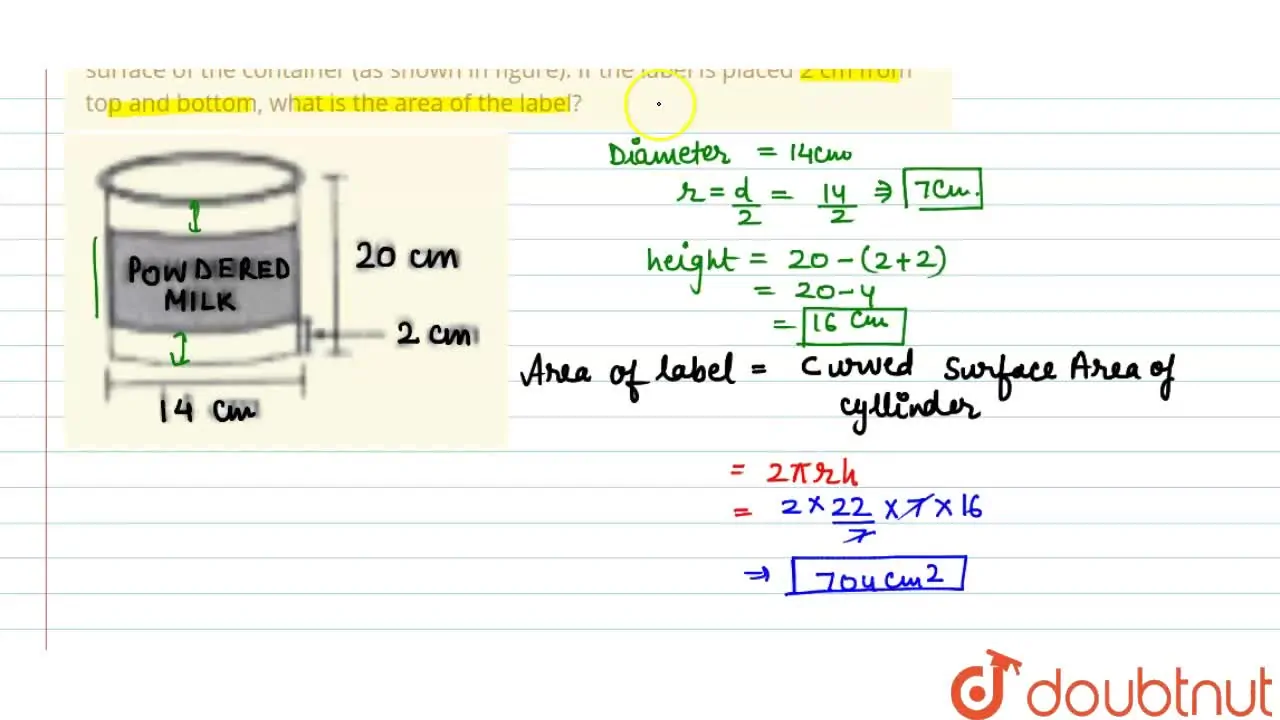 surface of the container (as shown in figure). If the label is placed 2 cm from
top and bottom, what is the area of the label?
POWDERED
MILK
20 cm
2 cm
14 cm
Diameter = 14cm
r = d/2 = 14/2 ⇒ 7cm.
height = 20 - (2+2)
= 20-4
= 16 cm
Area of label = Curved Surface Area of
cyllinder
= 2πrh
= 2 × 22/7 × 7 × 16
⇒ 704cm²
doubtnut